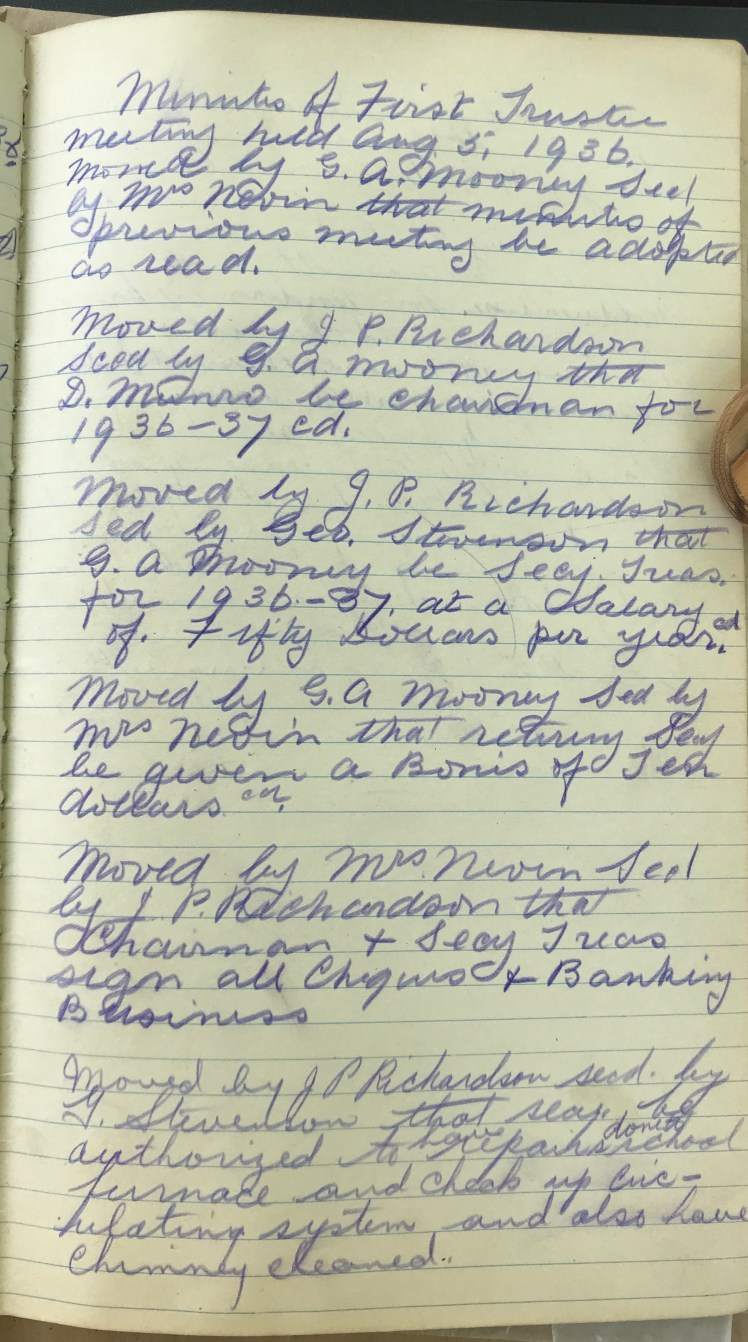 Minutes of First Trustee
meeting held Aug 5, 1936.
Moved by G. A. Mooney Secd
by Mrs Nevin that minutes of
previous meeting be adopted
as read.
Moved by J P. Richardson
Secd by G. A Mooney that
D. Munro be chairman for
1936-37 cd.
Moved by J. P. Richardson
Sed by Geo. Stevenson that
G. A Mooney be Secy. Treas.
for 1936.-37. at a Salary
of. Fifty Dollars per year. cd
Moved by G. A Mooney Sed by
Mrs Nevin that retiring Secy
be given a Bonis of Ten
dollars cd.
Moved by Mrs. Nevin Secd
by J P. Richardson that
Chairman + Secy Treas
sign all Cheques + Banking
Business
Moved by J P Richardson secd. by
G. Stevenson that secy. be
authorized to have repairs done to school
furnace and check up circ-
ulating system and also have
Chimney cleaned..